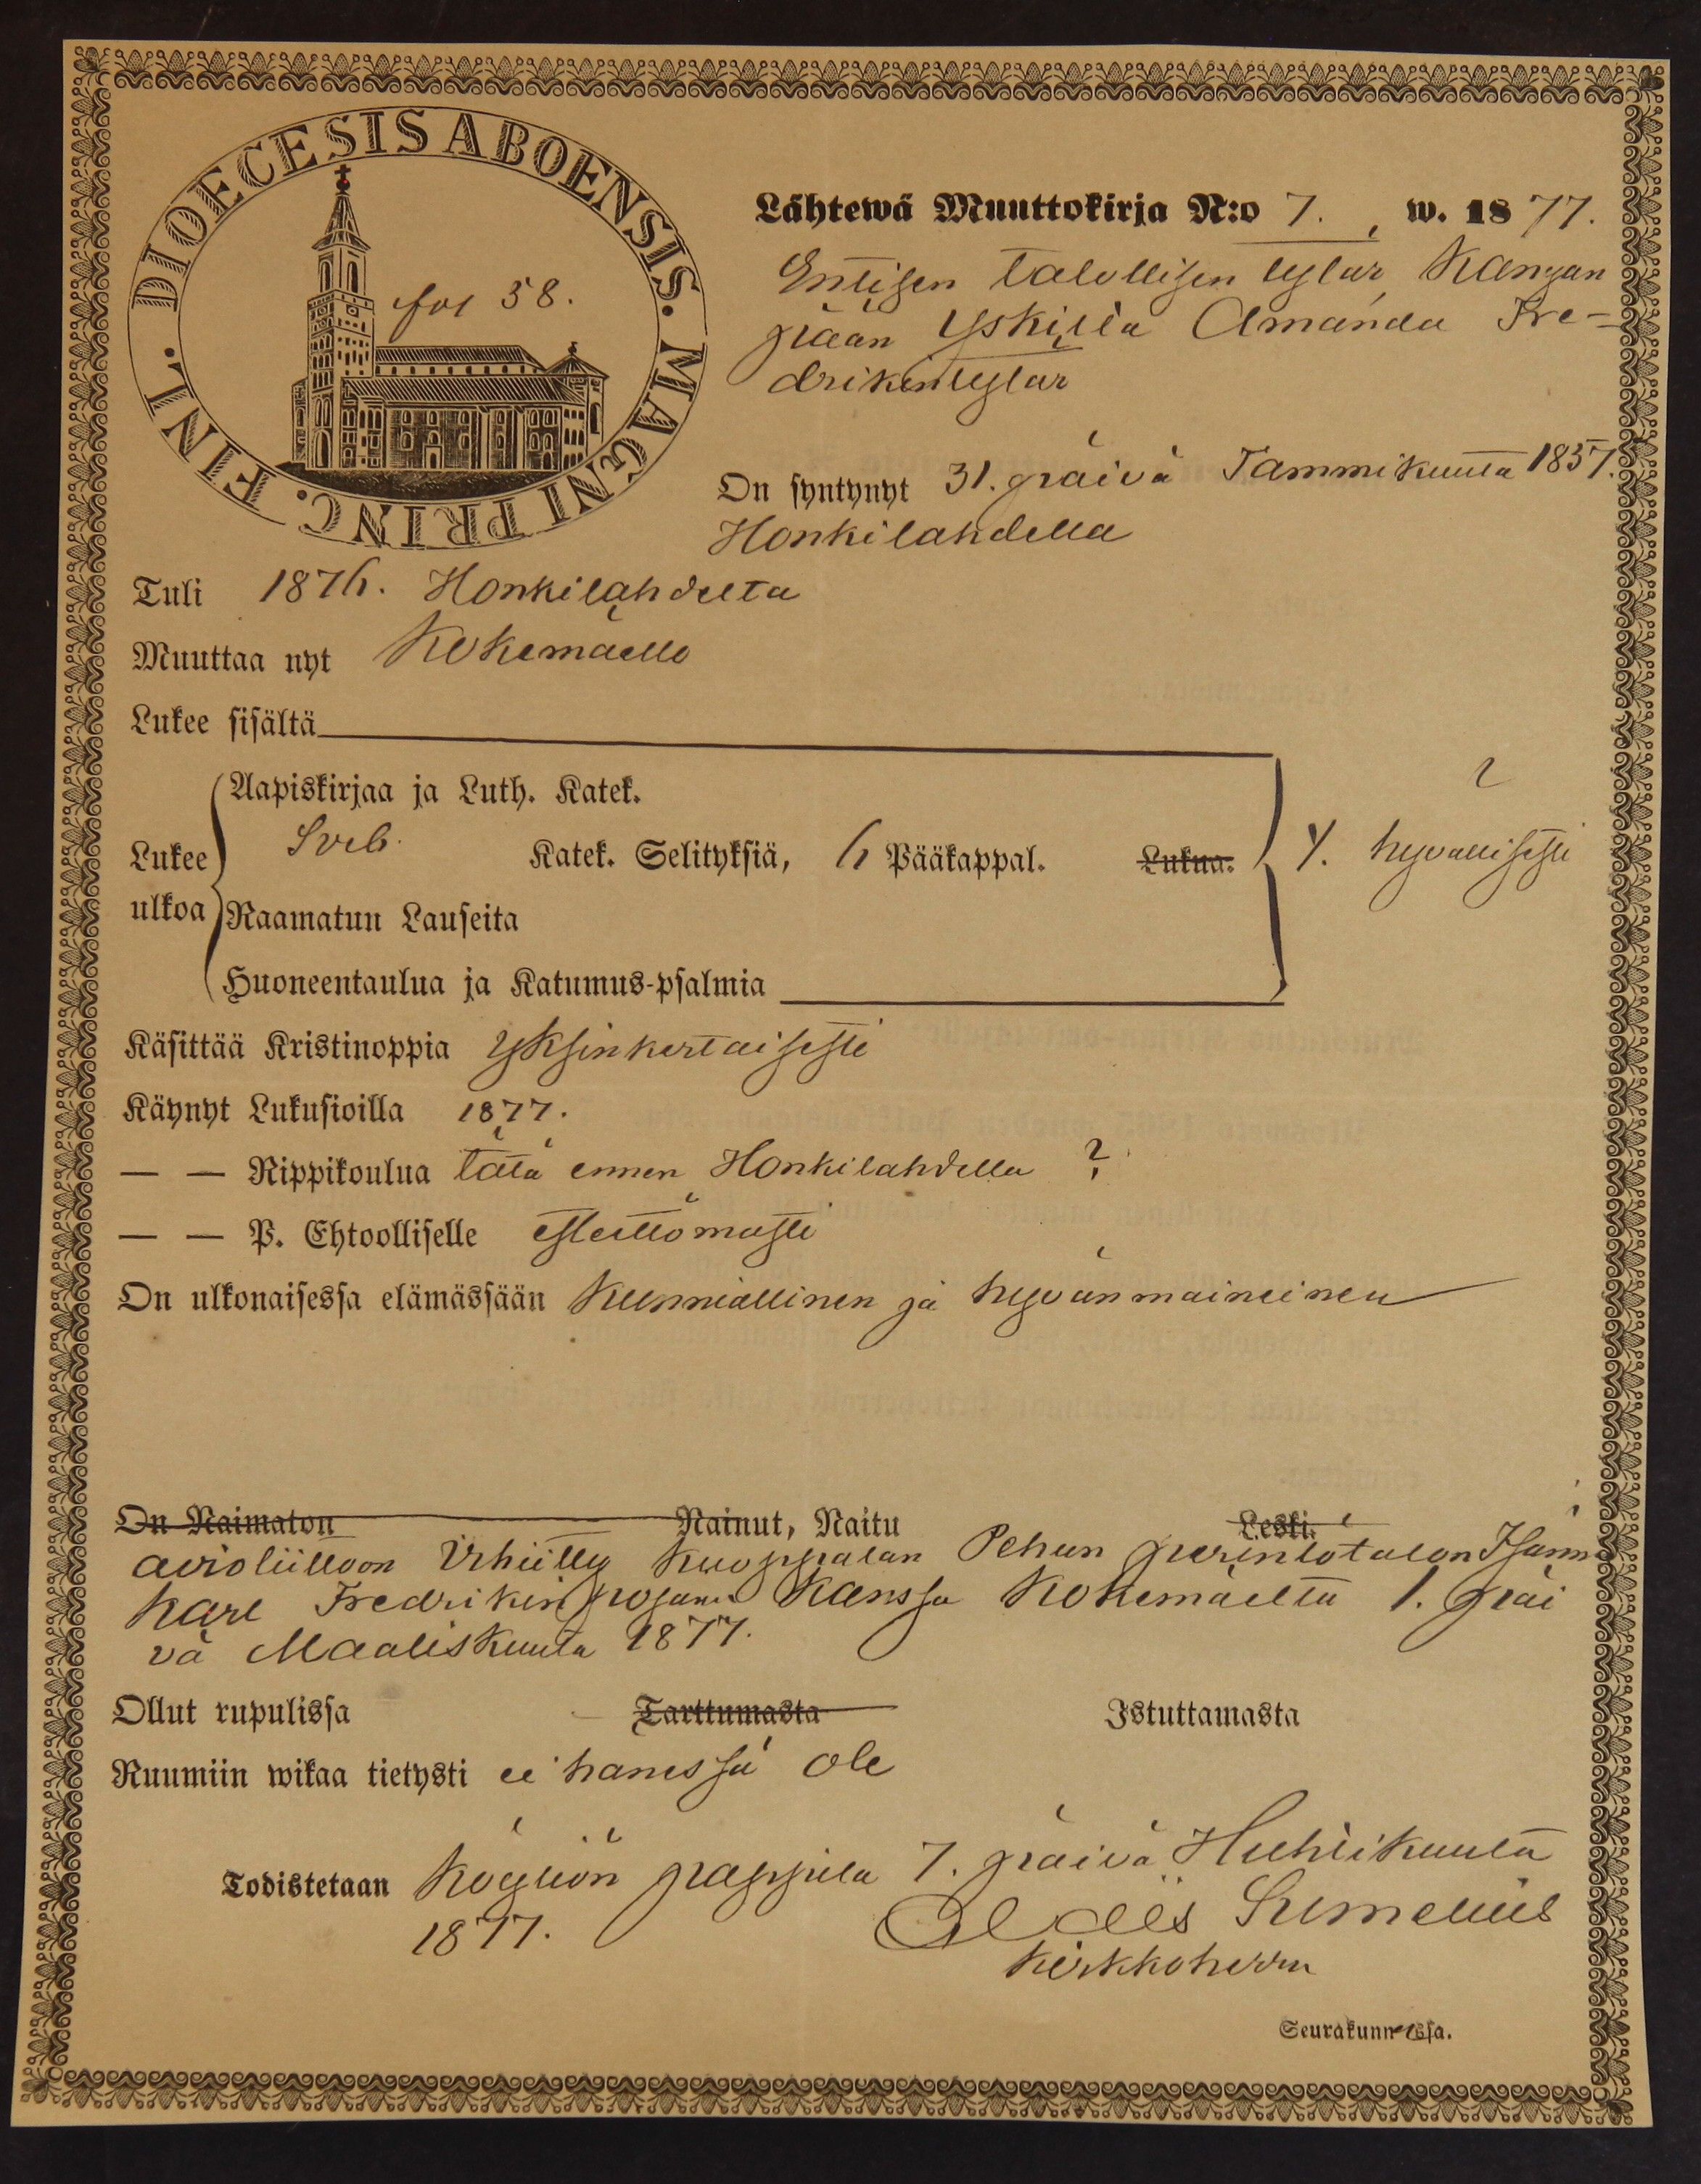 DIOECESIS ABOENSIS. MAGNI PRINC. FINL.
fol 58.
Lähtewä Muuttokirja N:o 7., w. 1877.
Entisen talollisen tytär Kangan
pään Yskilla Amanda Fre-
drikintytär
On syntynyt 31. päivä Tammikuuta 1857.
Honkilahdella
Tuli 1876. Honkilahdelta
Muuttaa nyt Kokemäelle
Lukee sisältä
Aapiskirjaa ja Luth. Katek.
Lukee ulkoa
Sveb. Katek. Selityksiä, 6 Pääkappal. Lukua. hyvällisesti
Raamatun Lauseita
Huoneentaulua ja Katumus-psalmia
Käsittää Kristinoppia Yksinkertaisesti
Käynyt Lukusioilla 1877.
— — Rippikoulua tätä ennen Honkilahdella ?
— — P. Ehtoolliselle esteettömästi
On ulkonaisessa elämässään kunniallinen ja hyvänmaineinen
On Naimaton Nainut, Naitu Leski.
avioliittoon Vihitty Kuoppalan Pehun perintötalon Isännä
Karl Fredrikinpojan Kanssa Kokemäeltä 1. päi
vä Maaliskuuta 1877.
Ollut rupulissa Tarttumasta Istuttamasta
Ruumiin wikaa tietysti ei hänessä ole
Todistetaan Köyliön pappila 7. päivä Huhtikuuta
1877.
Kirkkoherra
Seurakunnassa.